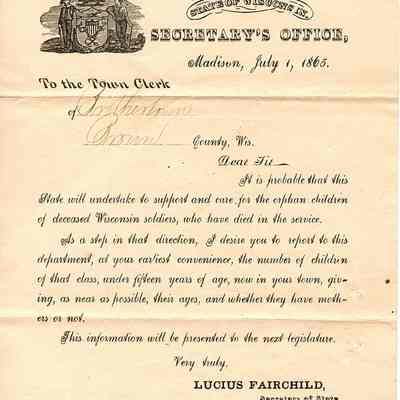 STATE OF WISCONSIN.
SECRETARY'S OFFICE,
Madison, July 1, 1865.
To the Town Clerk
of
Brown County, Wis.
Dear Sir—
It is probable that this
State will undertake to support and care, for the orphan children
of deceased Wisconsin soldiers, who have died in the service.
As a step in that direction, I desire you to report to this
department, at your earliest convenience, the number of children
of that class, under fifteen years of age, now in your town, giv-
ing, as near as possible, their ages, and whether they have moth-
ers or not.
This information will be presented to the next legislature.
Very truly,
LUCIUS FAIRCHILD,
Secretary of State